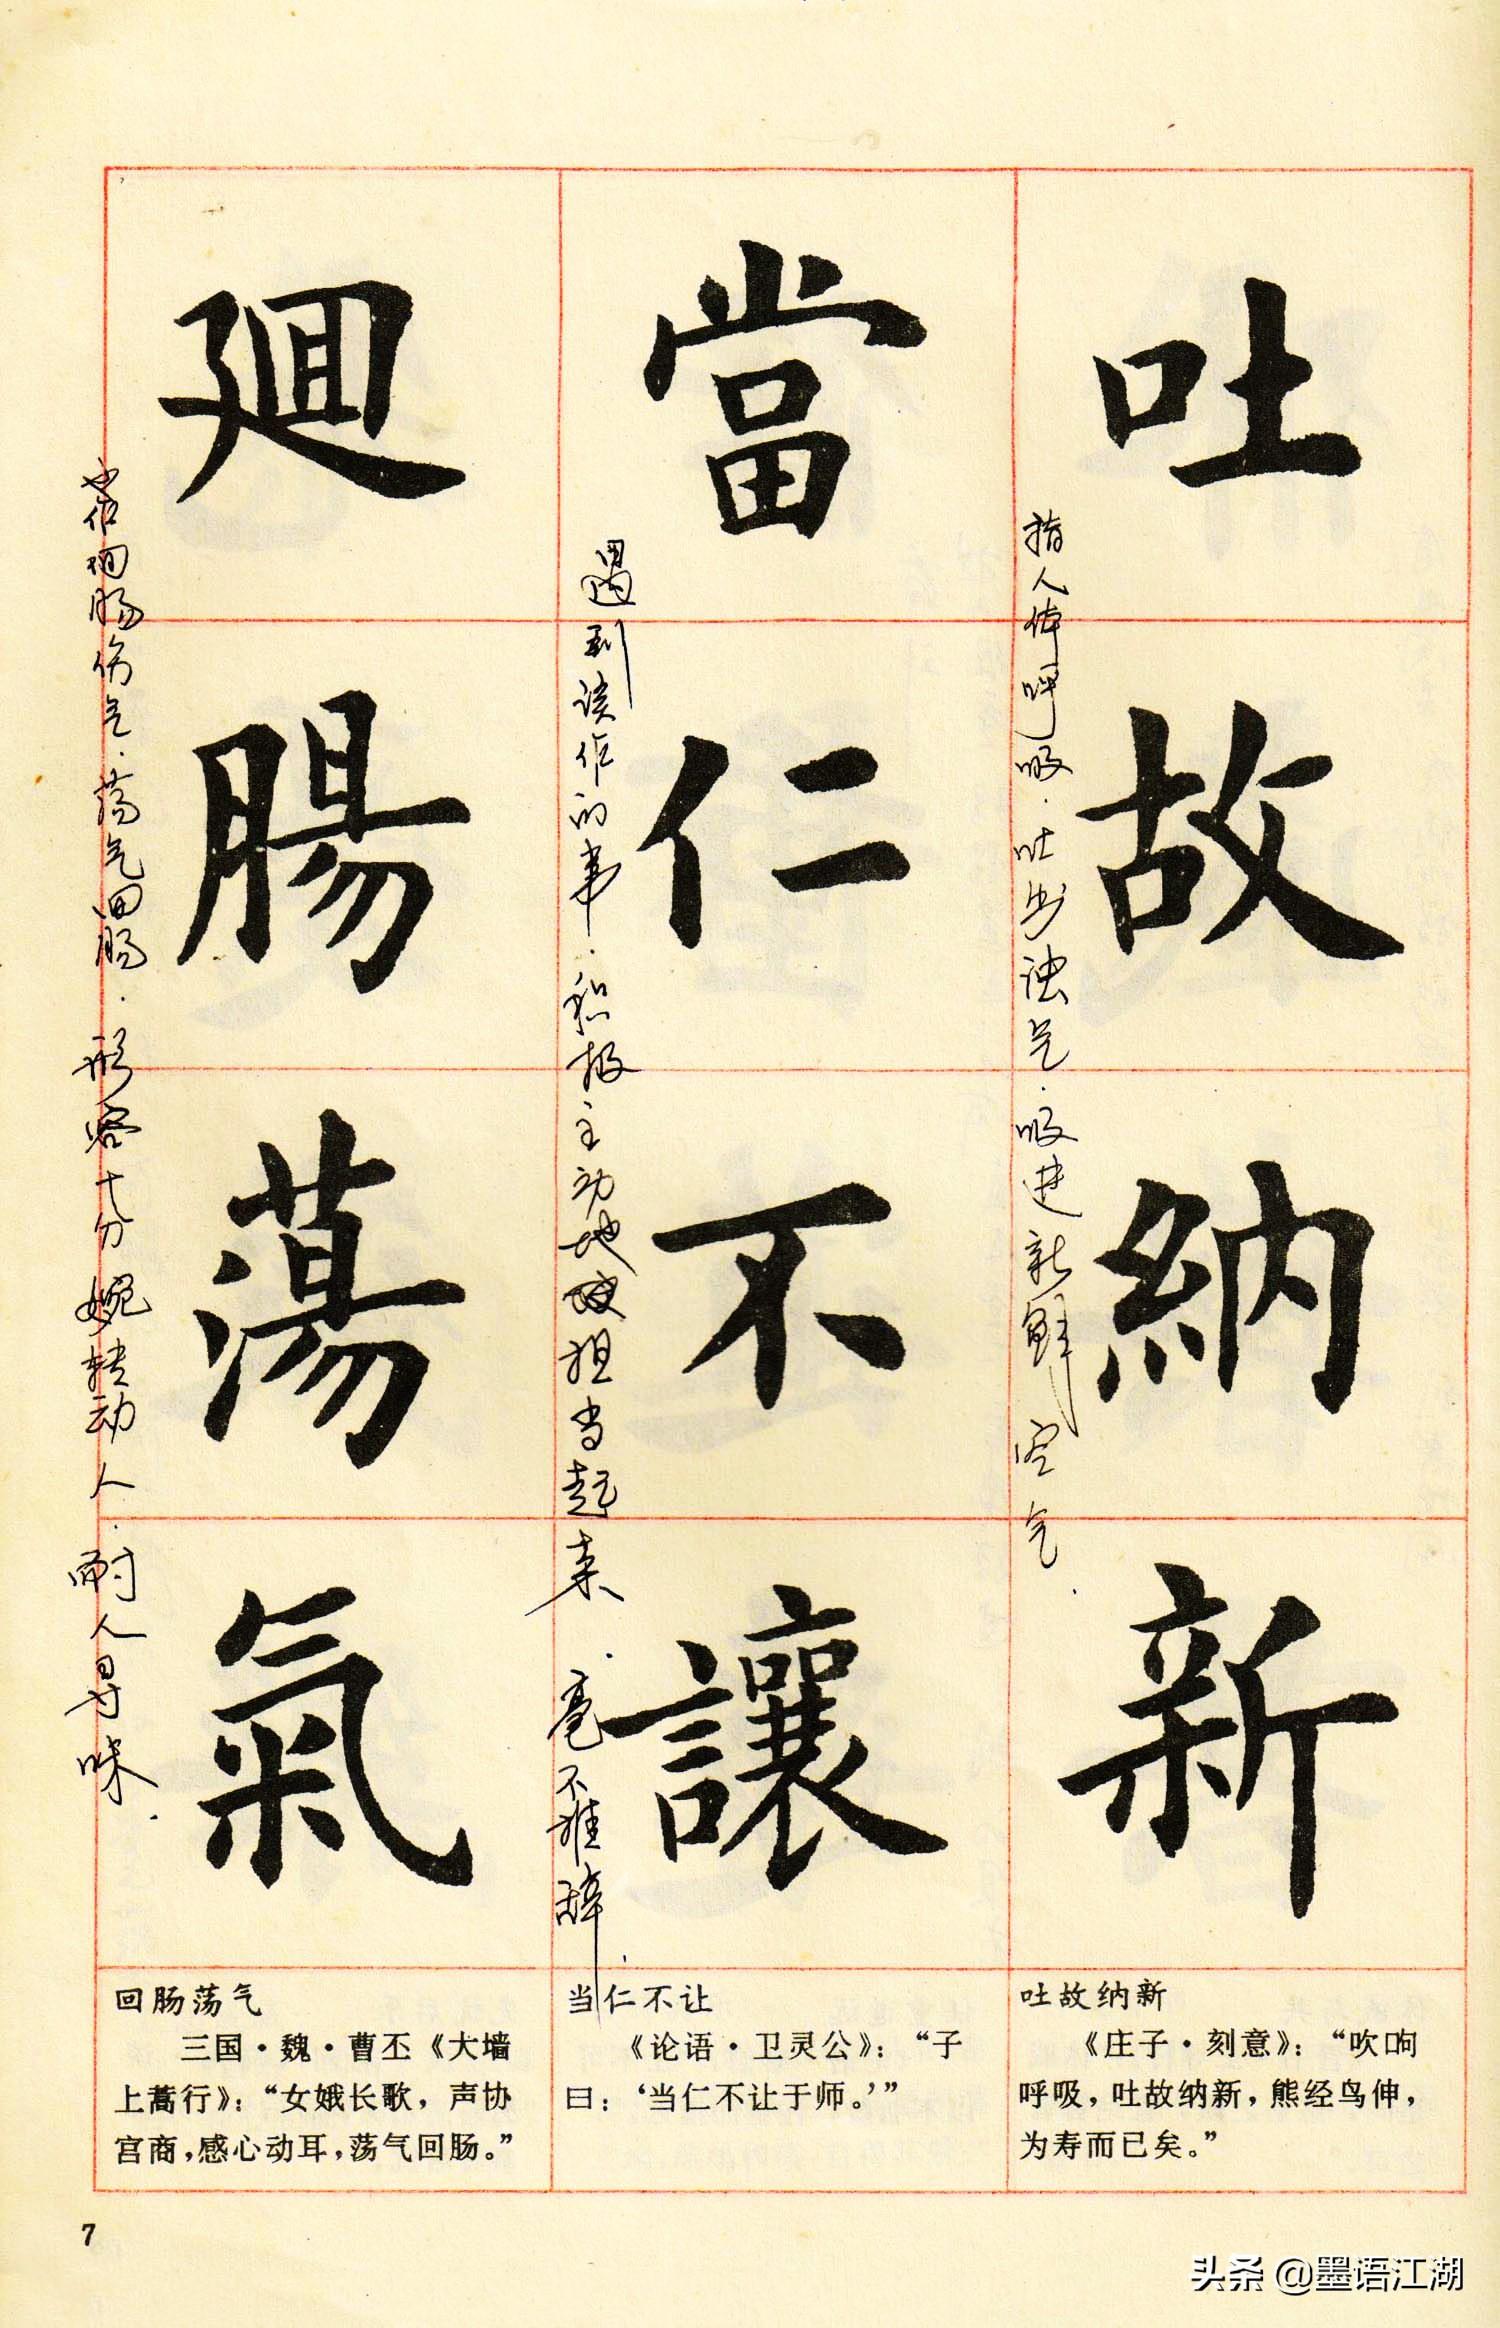 吐故納新
指人体呼吸.吐出浊气.吸进新鲜空气.
當仁不讓
遇到该作的事.积极主动地担当起来.毫不推辞.
廻腸蕩氣
也作回肠伤气.荡气回肠.形容十分婉转动人.耐人寻味.
吐故纳新
《庄子·刻意》：“吹呴
呼吸，吐故纳新，熊经鸟伸，
为寿而已矣。”
当仁不让
《论语·卫灵公》：“子
曰：‘当仁不让于师。’”
回肠荡气
三国·魏·曹丕《大墙
上蒿行》：“女娥长歌，声协
宫商，感心动耳，荡气回肠。”
7
头条 @墨语江湖